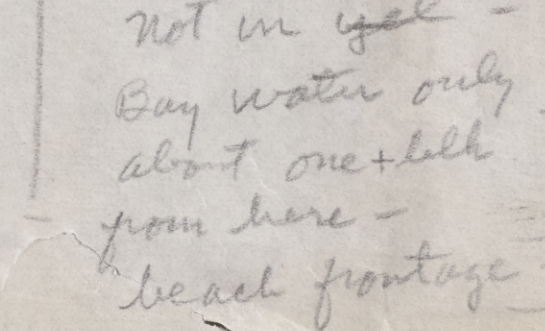 not in yet -
Bay water only
about one +
from here -
beach frontage